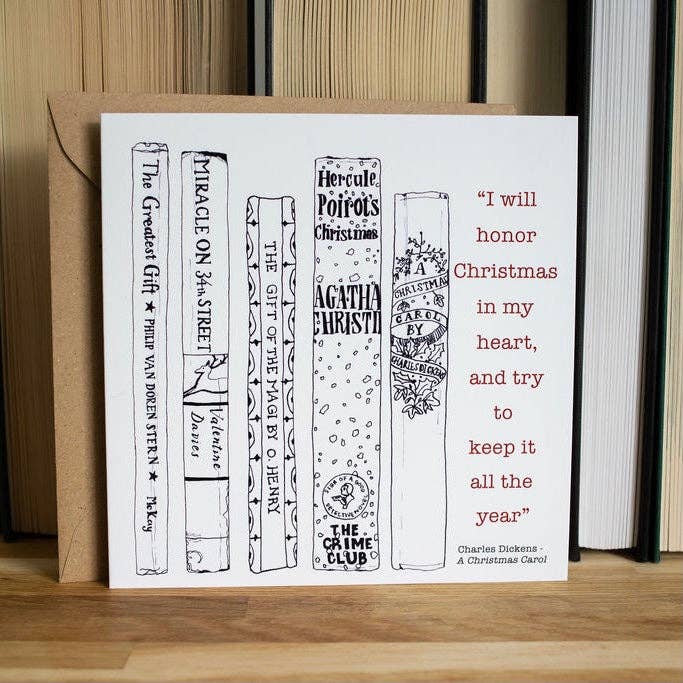 The Greatest Gift ★ PHILIP VAN DOREN STERN ★ McKay
MIRACLE ON 34th STREET
Valentine
Davies
THE GIFT OF THE MAGI BY O. HENRY
Hercule
Poirot's
Christmas
AGATHA
CHRISTI
SIGN OF A GOOD
DETECTIVE NOVEL
THE
CRIME
CLUB
A
CHRISTMAS
CAROL
BY
CHARLES DICKENS
“I will
honor
Christmas
in my
heart,
and try
to
keep it
all the
year”
Charles Dickens -
A Christmas Carol